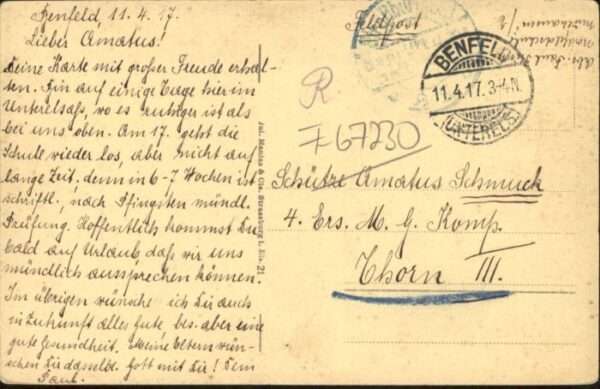 Benfeld 11.4.17.
Lieber Amatus!
Deine Karte mit großer Freude erhal-
ten. Bin auf einige Tage hier im
Unterelsaß, wo es ruhiger ist als
bei uns oben. Am 17. geht die
Schule wieder los, aber nicht auf
lange Zeit, denn in 6-7 Wochen ist
schriftl., nach Pfingsten mündl.
Prüfung. Hoffentlich kommst Du
bald auf Urlaub, daß wir uns
mündlich aussprechen können.
Im übrigen wünsche ich Dir auch
in Zukunft alles Gute, bes. aber eine
gute Gesundheit. Meine Eltern wün-
schen Dir dasselbe. Gott mit Dir! Dein
Paul.
Jul. Manias & Cie. Strassburg i. Els. 21
Feldpost
BENFELD
11.4.17. 3-4N.
(UNTERELS.)
Abs. Paul
R
7 67230
Schütze Amatus Schmuck
4. Ers. M. G. Komp.
Thorn III.